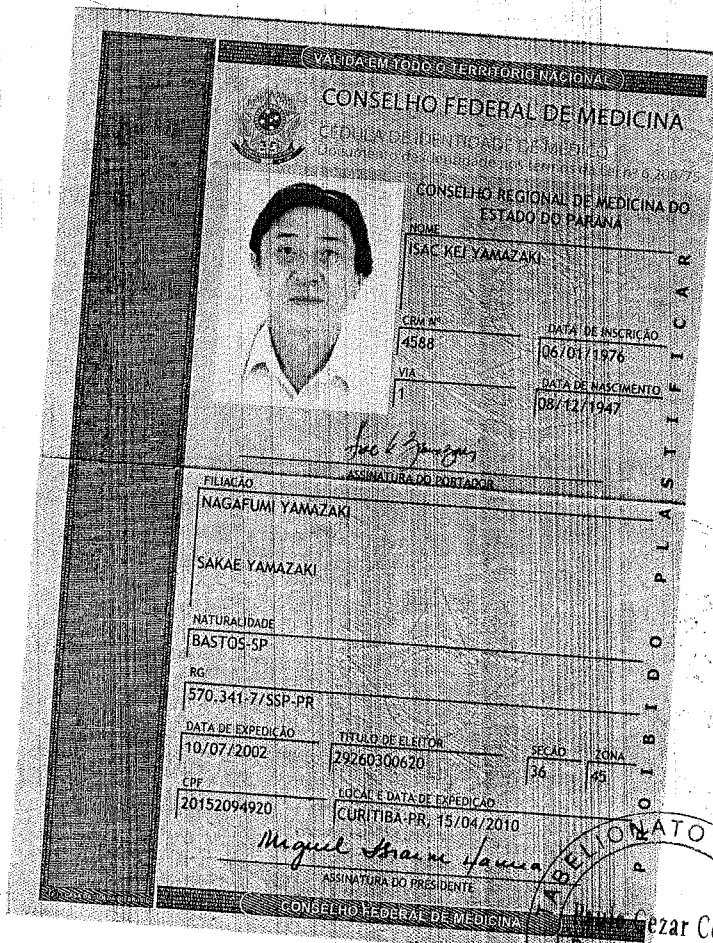 VÁLIDA EM TODO O TERRITÓRIO NACIONAL
CONSELHO FEDERAL DE MEDICINA
CÉDULA DE IDENTIDADE DE MÉDICO
Documento de identidade nos termos da Lei nº 6.206/75
CONSELHO REGIONAL DE MEDICINA DO
ESTADO DO PARANÁ
NOME
ISAC KEJ YAMAZAKI
CRM Nº
4588
DATA DE INSCRIÇÃO
06/01/1976
VIA
1
DATA DE NASCIMENTO
08/12/1947
ASSINATURA DO PORTADOR
FILIAÇÃO
NAGAFUMI YAMAZAKI
SAKAE YAMAZAKI
NATURALIDADE
BASTOS-SP
RG
570.341-7/SSP-PR
DATA DE EXPEDIÇÃO
10/07/2002
TÍTULO DE ELEITOR
29260300620
SEÇÃO
36
ZONA
45
CPF
20152094920
LOCAL E DATA DE EXPEDIÇÃO
CURITIBA-PR, 15/04/2010
ASSINATURA DO PRESIDENTE
CONSELHO FEDERAL DE MEDICINA
PROIBIDO PLASTIFICAR
TABELIONATO
Cezar